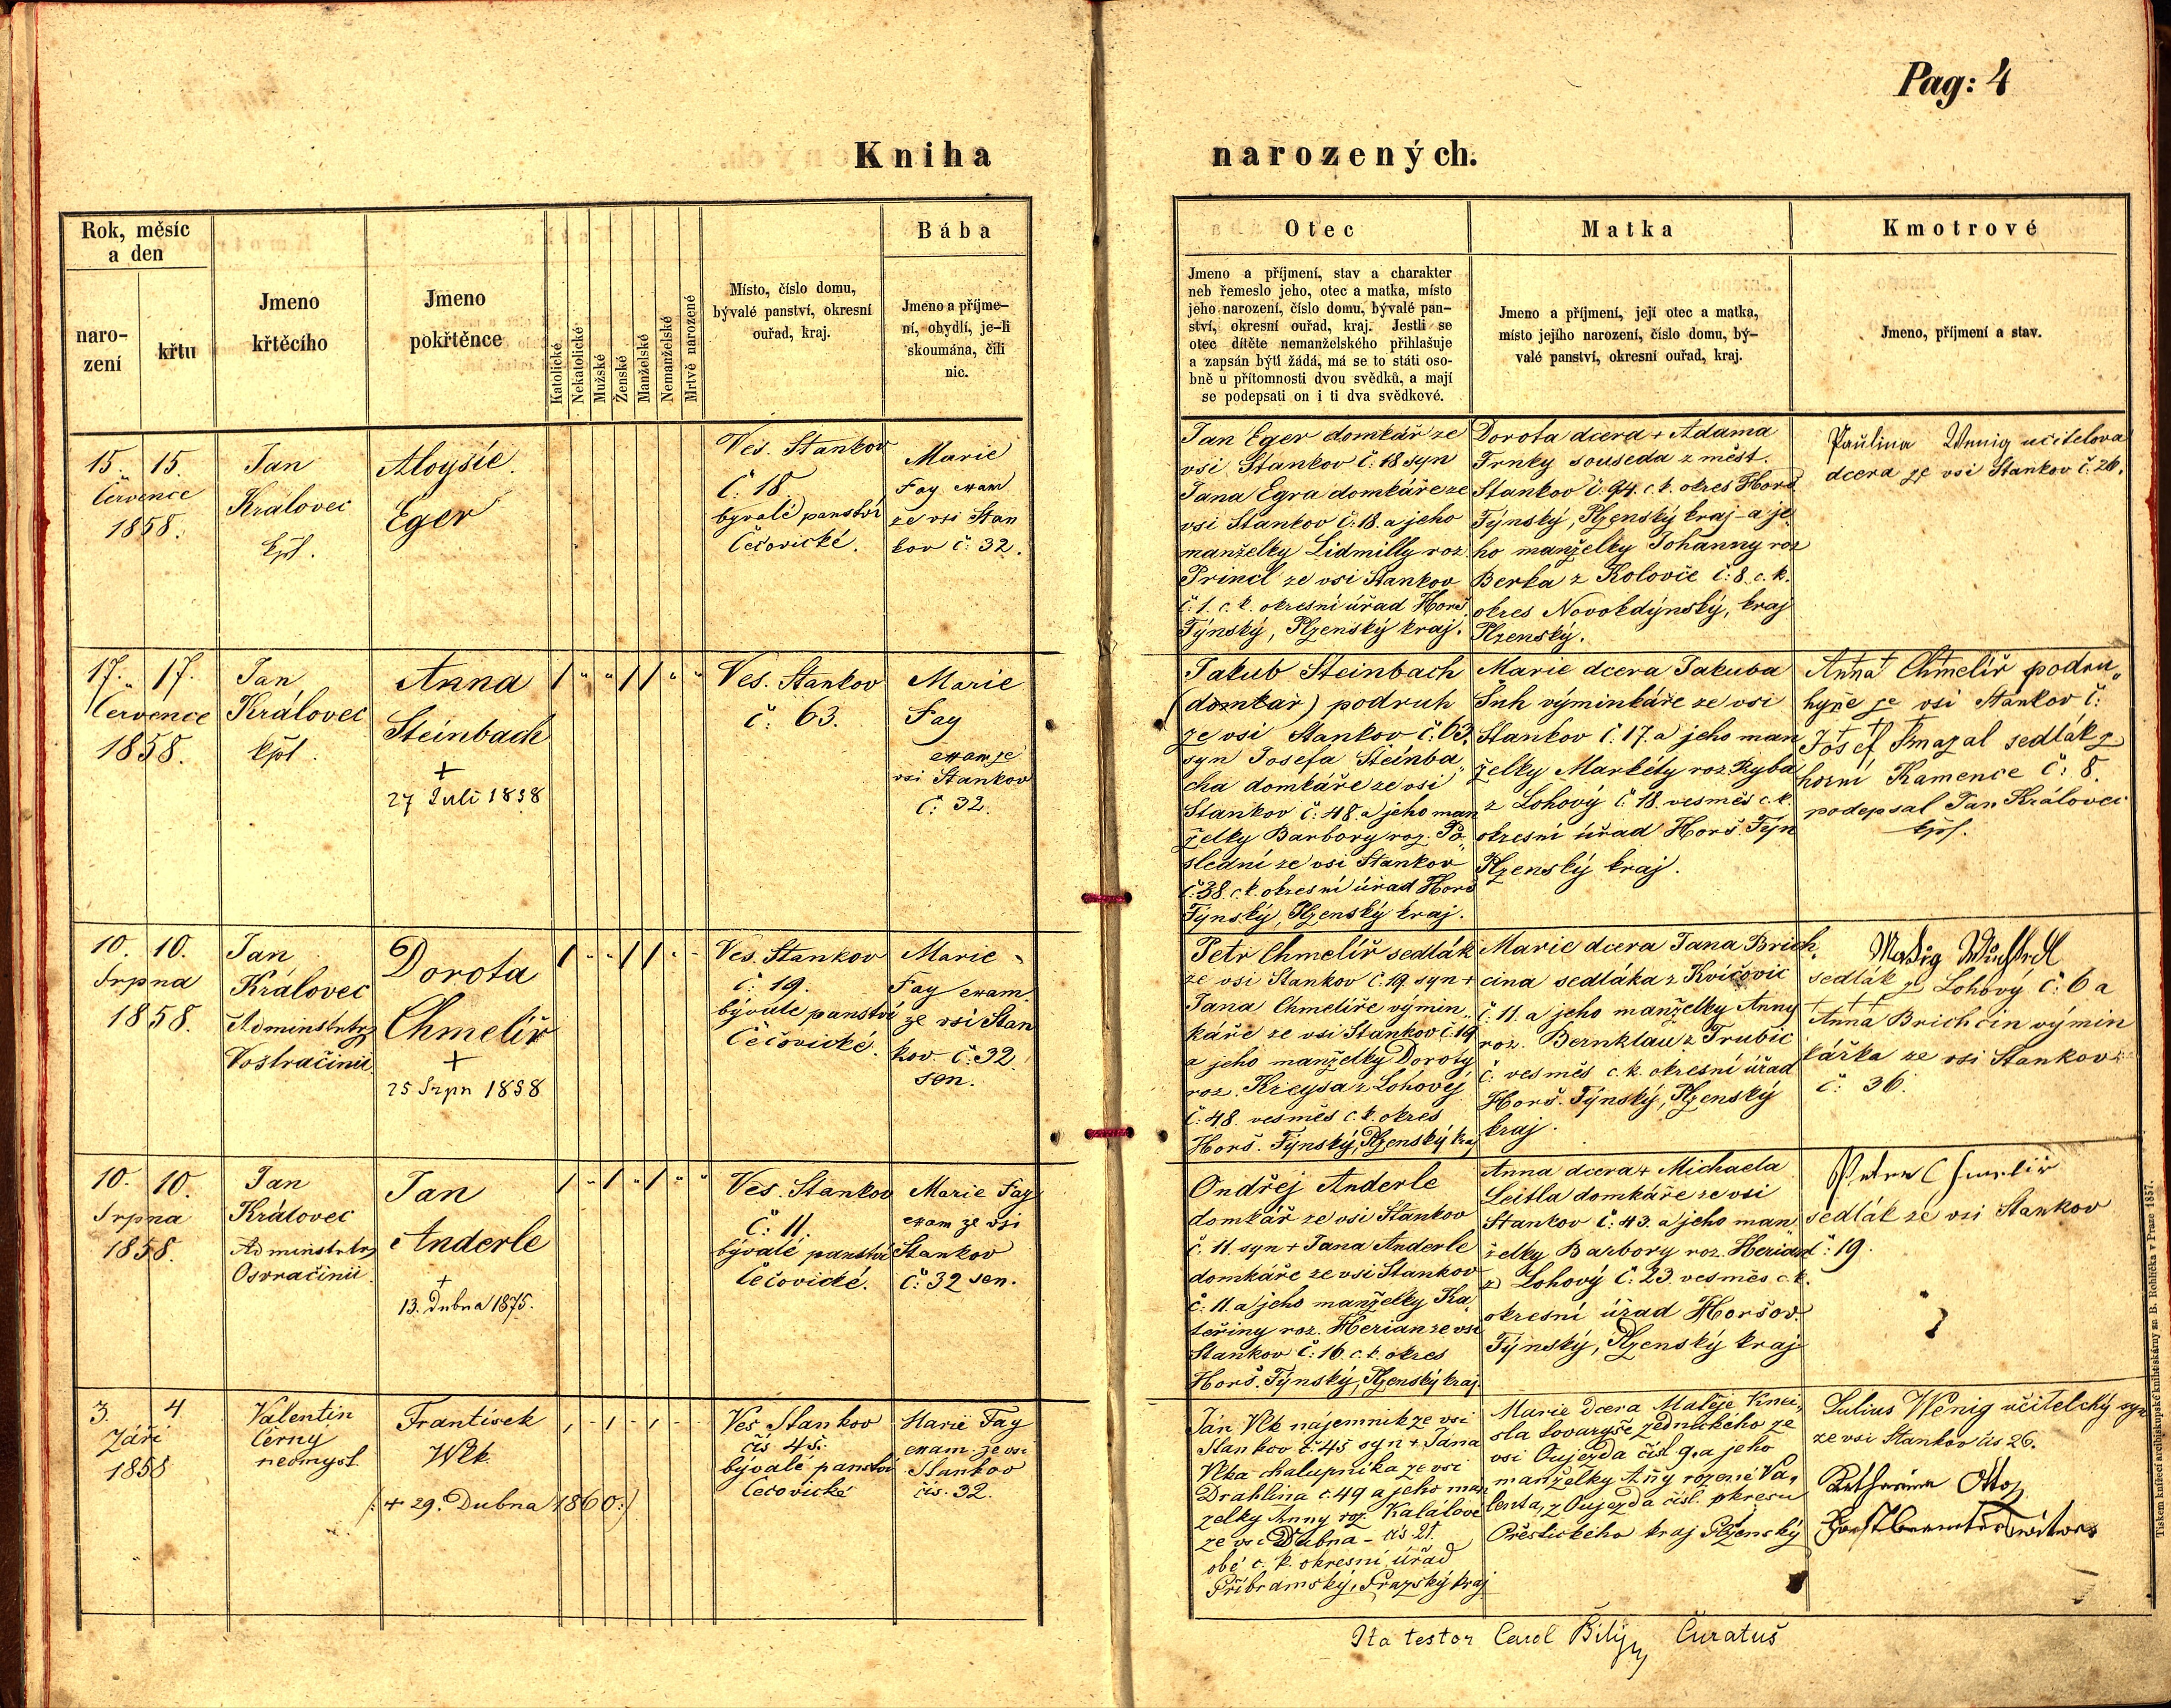 Pag: 4
Kniha narozených.
Rok, měsíc
a den
naro-
zení
křtu
Jmeno
křtěcího
Jmeno
pokřtěnce
Katolické
Nekatolické
Mužské
Ženské
Manželské
Nemanželské
Mrtvě narozené
Místo, číslo domu,
bývalé panství, okresní
ouřad, kraj.
Bába
Jmeno a příjme-
ní, obydlí, je-li
skoumána, čili
nic.
Otec
Jmeno a příjmení, stav a charakter
neb řemeslo jeho, otec a matka, místo
jeho narození, číslo domu, bývalé pan-
ství, okresní ouřad, kraj. Jestli se
otec dítěte nemanželského přihlašuje
a zapsán býti žádá, má se to státi oso-
bně u přítomnosti dvou svědků, a mají
se podepsati on i ti dva svědkové.
Matka
Jmeno a příjmení, její otec a matka,
místo jejího narození, číslo domu, bý-
valé panství, okresní ouřad, kraj.
Kmotrové
Jmeno, příjmení a stav.
15. 15.
Července
1858.
Jan
Královec
kpl.
Aloysie.
Eger
Ves. Stankov
č: 18
byvalé panství
Čečovické.
Marie
Fay exam
ze vsi Stan
kov č: 32.
Jan Eger domkář ze
vsi Stankov č: 18 syn
Jana Egra domkáře ze
vsi Stankov č: 18. a jeho
manželky Lidmilly roz.
Princl ze vsi Stankov
č: 1. c. k. okresní úřad Horš.
Týnský, Plzenský kraj.
Dorota dcera + Adama
Trnky souseda z měst.
Stankov č. 94. c. k. okres Horš
Týnský, Plzenský kraj - a je
ho manželky Johanny roz
Berka z Koloveče č: 8. c. k.
okres Novokdýnský, kraj
Plzenský.
Paulina Wenig učitelova
dcera ze vsi Stankov č. 26.
17. 17.
Července
1858.
Jan
Královec
kpl.
Anna
Steinbach
+
27 Juli 1858
Ves. Stankov
č: 63.
Marie
Fay
exam ze
vsi Stankov
č: 32.
Jakub Steinbach
(domkař) podruh
ze vsi Stankov č: 63.
syn Josefa Steinba„
cha domkáře ze vsi
Stankov č: 48. a jeho man
želky Barbory roz. Po„
slední ze vsi Stankov
č: 38. c. k. okresní úřad Horš
Týnský, Plzenský kraj.
Marie dcera Jakuba
Šuh výminkáře ze vsi
Stankov č. 17. a jeho man
želky Markéty roz. Ryba
z Lohový č. 18. vesměs c. k.
okresní úřad Horš. Týn
Plzenský kraj.
+++
Anna Chmelíř podru„
hyně ze vsi Stankov č:
+++
Josef Smazal sedlák z
horní Kamence č: 8.
podepsal Jan Královec
kpl.
10. 10.
Srpna
1858.
Jan
Královec
Adminstrtr
Vostračinii
Dorota
Chmelíř
+
25 Srpn 1858
Ves. Stankov
č: 19.
bývalé panství
Čečovické.
Marie
Fay exam.
ze vsi Stan
kov. č. 32.
sen.
Petr Chmelíř sedlák
ze vsi Stankov č. 19. syn +
Jana Chmelíře výmin„
káře ze vsi Stankov č. 19
a jeho manželky Doroty
roz. Kreysa z Lohový
č: 48. vesměs c. k. okres
Horš. Týnský, Plzenský kraj
Marie dcera Jana Brich„
cina sedláka z Kvíčovic
č. 11. a jeho manželky Anny
roz. Bernklau z Trubic
č. vesměs c. k. okresní úřad
Horš. Týnský, Plzenský
kraj.
sedlák z Lohový č: 6 a
+++
Anna Brichcin výmin
kářka ze vsi Stankov
č: 36.
10. 10.
Srpna
1858.
Jan
Královec
Adminstrtr
Osvračinii.
Jan
Anderle
+
13. Dubna 1875.
Ves. Stankov
č: 11.
bývalé panství
Čečovické.
Marie Fay
exam ze vsi
Stankov
č: 32 sen.
Ondřej Anderle
domkář ze vsi Stankov
č. 11. syn + Jana Anderle
domkáře ze vsi Stankov
č: 11. a jeho manželky Ka„
teřiny roz. Herian ze vsi
Stankov č: 16. c. k. okres
Horš. Týnský, Plzenský kraj.
Anna dcera + Michaela
Leitla domkáře ze vsi
Stankov č: 43. a jeho man
želky Barbory roz. Herian
z Lohový č: 23. vesměs c. k.
okresní úřad Horšov.
Týnský, Plzenský kraj
Chmelíř
sedlák ze vsi Stankov
č: 19.
3. 4
Září
1858
Valentin
Černý
neomysl.
František
Wlk.
(: + 29. Dubna 1860 :)
Ves Stankov
čís 45.
bývalé panství
Čečovické
Marie Fay
exam. ze vsi
Stankov
čís. 32.
Ján Vlk nájemnik ze vsi
Stankov č. 45 syn + Jána
Vlka chalupníka ze vsi
Drahlina č. 49 a jeho man
želky Anny roz. Kalálové
ze vsi Dubna - čís 21.
obé c. k. okresní úřad
Příbramský, Pražský kraj
Marie Dcera Matěje Knei„
sla tovaryše zednického ze
vsi Oujezda čísl 9. a jeho
manželky Anny rozené Va„
lenta, z Oujezda čísl. okresu
Přestického kraj Plzenský
Julius Wenig učitelcký syn
ze vsi Stankov čís 26.
Katharina Otto
Ita testor Carol Bílý Curatus
Tiskem knížecí arcibiskupské knihtiskárny za B. Rohlíčka v Praze 1857.